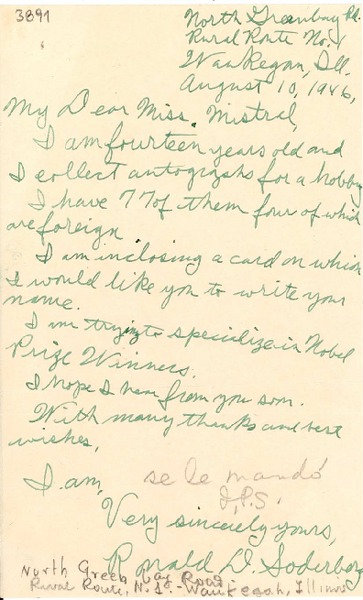 3891
North Greenbay Rd.
Rural Route No. 1
Waukegan, Ill.
August 10, 1946,
My Dear Miss. Mistral,
I am fourteen years old and
I collect autographs for a hobby
I have 77 of them four of which
are foreign
I am inclosing a card on which
I would like you to write your
name.
I am trying to specialize in Nobel
Prize Winners.
I hope I hear from you soon.
With many thanks and best
wishes,
I am,
se le mandó
I.P.S.
Very sincerely yours,
Ronald D. Soderberg
North Green bay Road
Rural Route, N. 1 - Waukegan, Illinois